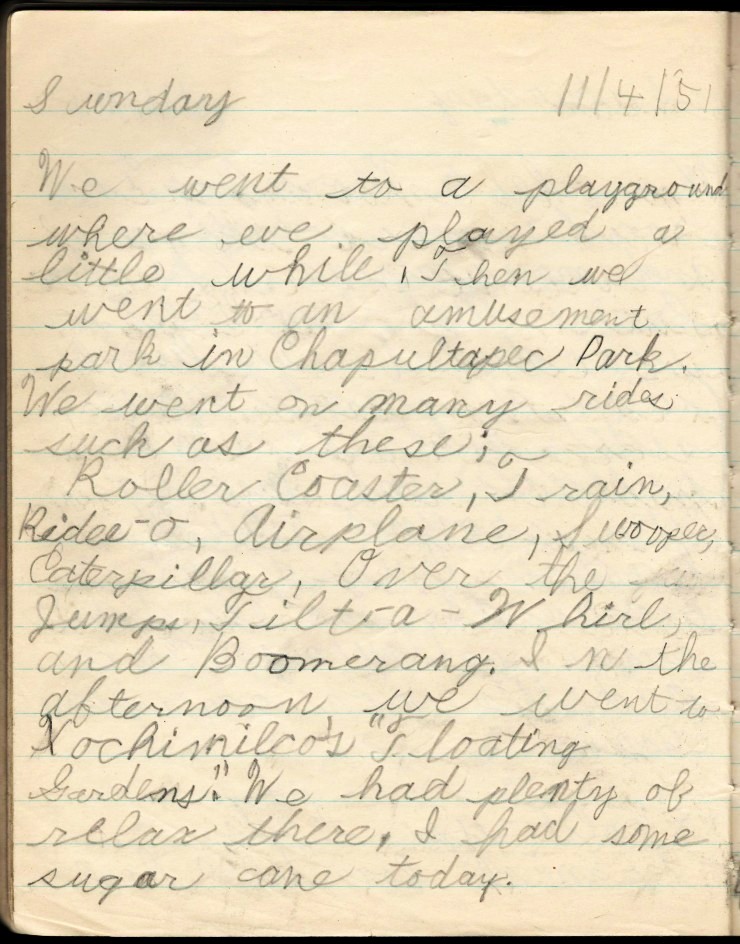 Sunday 11/4/51
We went to a playground
where we played a
little while. Then we
went to an amusement
park in Chapultapec Park.
We went on many rides
such as these;
Roller Coaster, Train,
Ridee-o, Airplane, Swooper,
Caterpillar, Over the
Jumps, Tilt-a-Whirl,
and Boomerang. In the
afternoon we went to
Xochimilco's "Floating
Gardens". We had plenty of
relax there. I had some
sugar cane today.